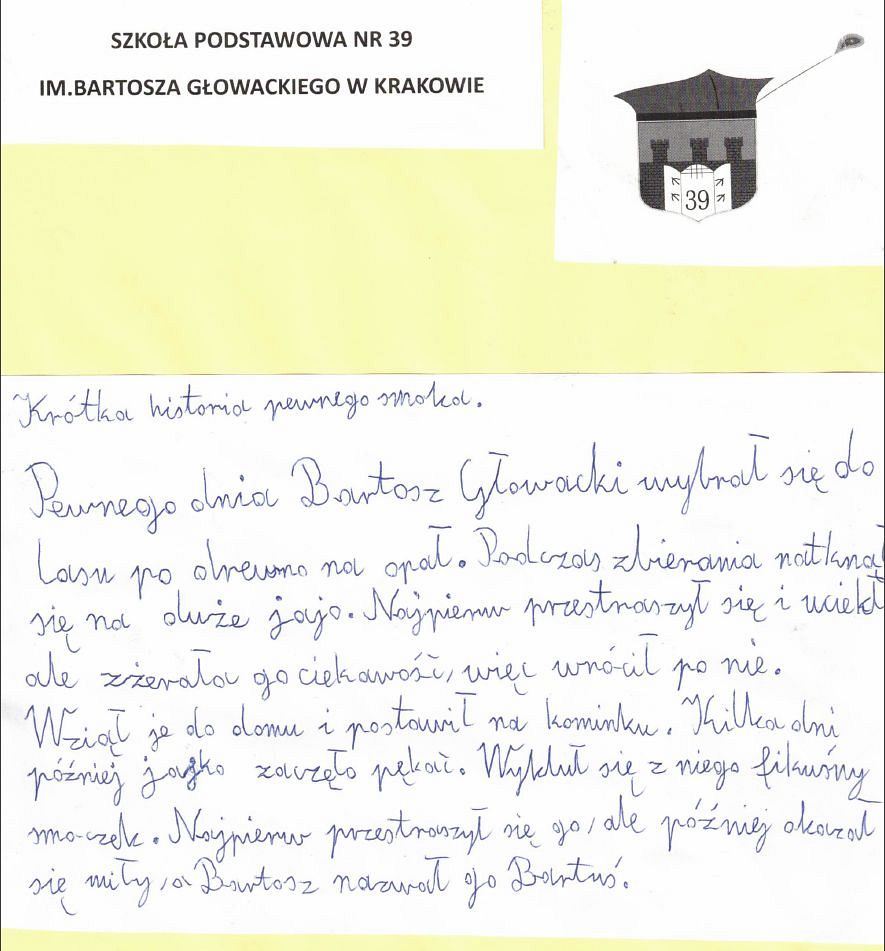 SZKOŁA PODSTAWOWA NR 39
IM.BARTOSZA GŁOWACKIEGO W KRAKOWIE
39
Krótka historia pewnego smoka.
Pewnego dnia Bartosz Głowacki wybrał się do
lasu po drewno na opał. Podczas zbierania natknął
się na duże jajo. Najpierw przestraszył się i uciekł
ale zżerała go ciekawość, więc wrócił po nie.
Wziął je do domu i postawił na kominku. Kilka dni
później jajko zaczęło pękać. Wykluł się z niego fikuśny
smoczek. Najpierw przestraszył się go, ale później okazał
się miły, a Bartosz nazwał go Bartuś.